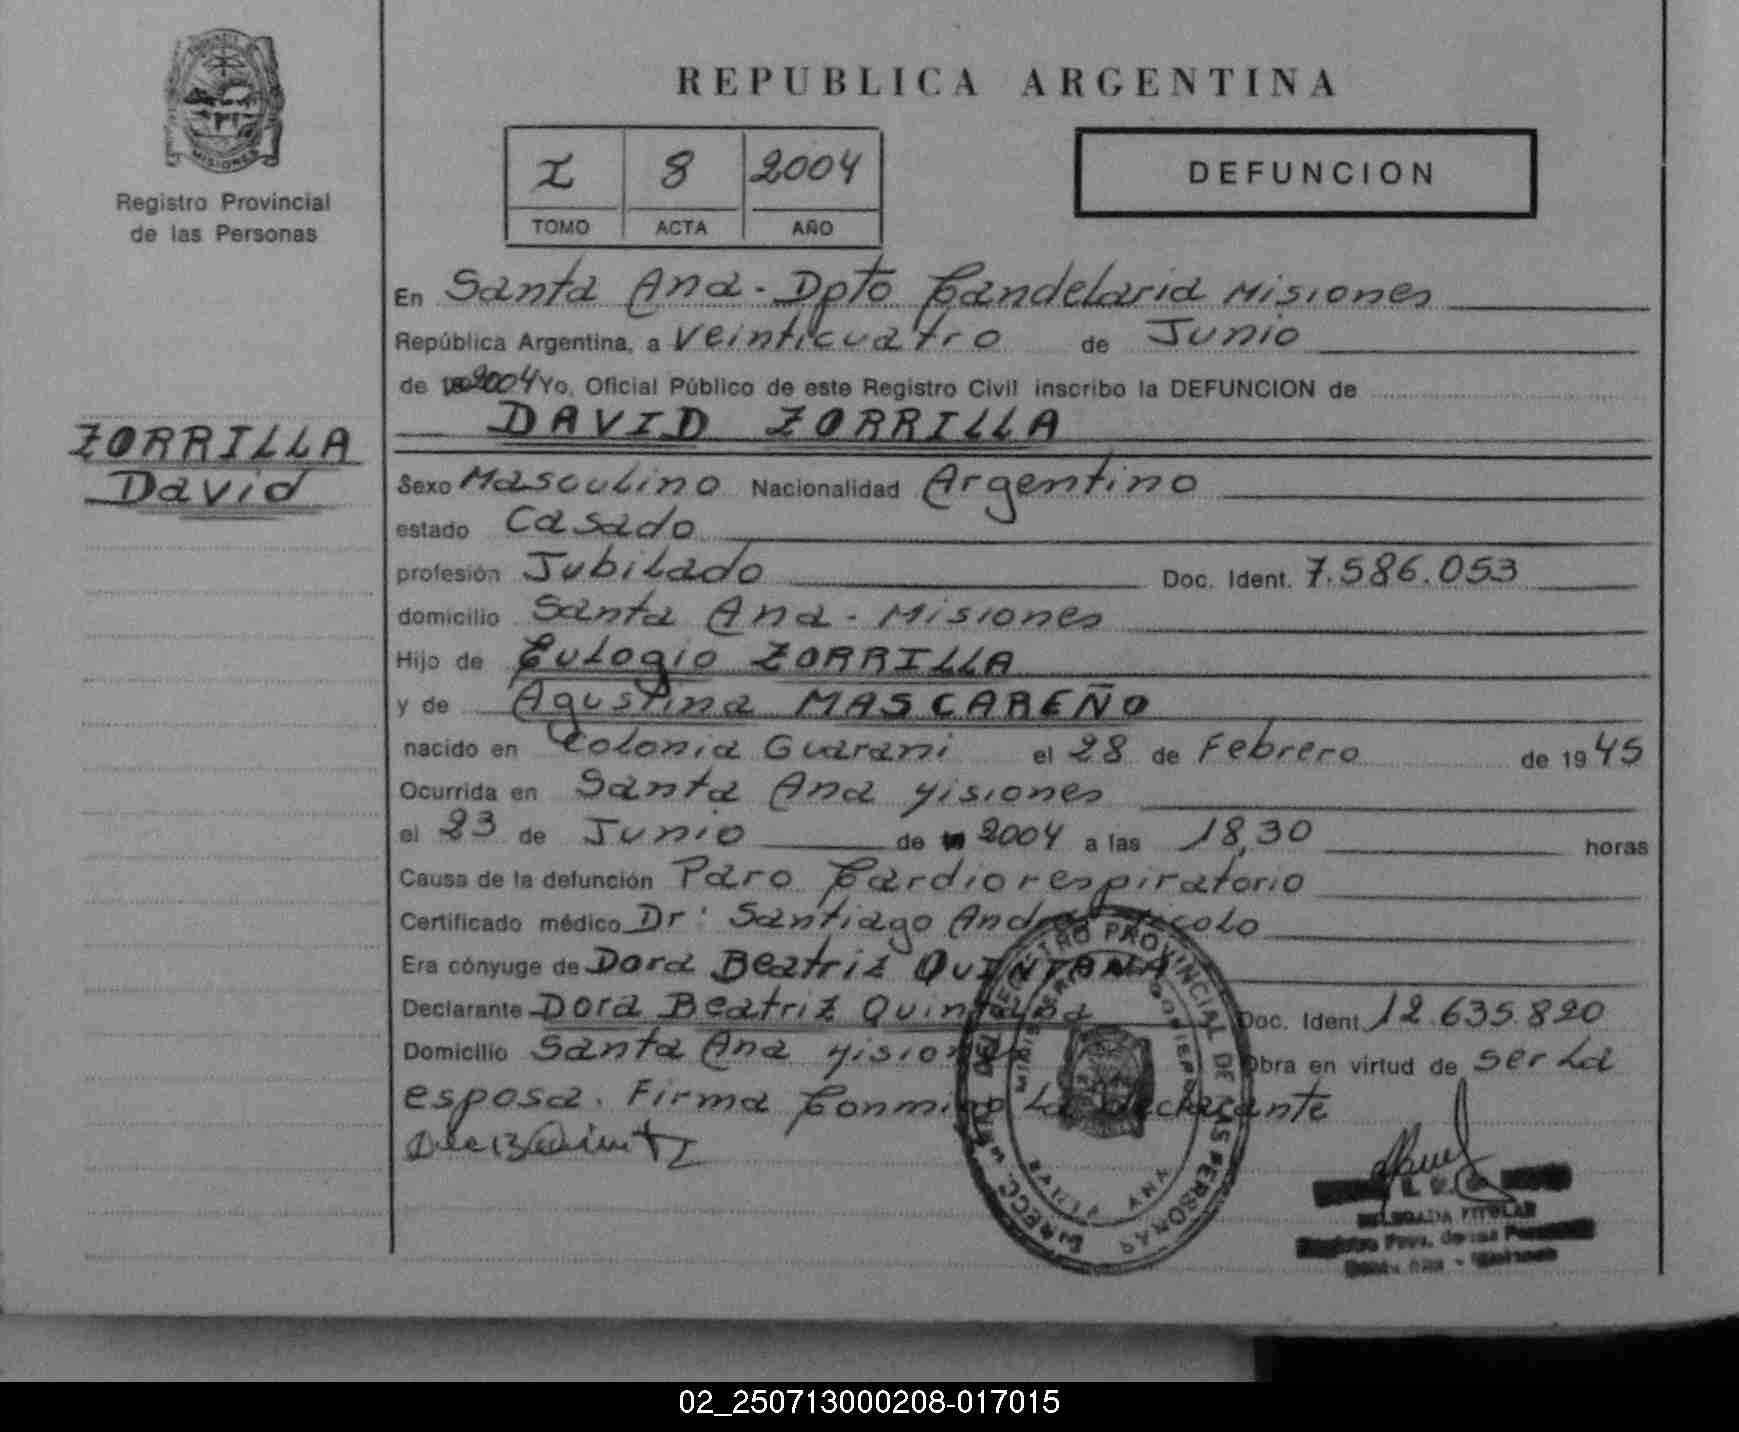 REPUBLICA ARGENTINA
MISIONES
Registro Provincial
de las Personas
I 8 2004
TOMO ACTA AÑO
DEFUNCION
En Santa Ana - Dpto Candelaria Misiones
República Argentina, a veinticuatro de Junio
de 2004 Yo, Oficial Público de este Registro Civil inscribo la DEFUNCION de
DAVID ZORRILLA
ZORRILLA
David
Sexo Masculino Nacionalidad Argentino
estado Casado
profesión Jubilado Doc. Ident. 7.586.053
domicilio Santa Ana - Misiones
Hijo de Eulogio ZORRILLA
y de Agustina MASCAREÑO
nacido en Colonia Guarani el 28 de Febrero de 1945
Ocurrida en Santa Ana Misiones
el 23 de Junio de 2004 a las 18,30 horas
Causa de la defunción Paro Cardiorespiratorio
Certificado médico Dr: Santiago
Era cónyuge de Dora Beatriz QUINTANA
Declarante Dora Beatriz Quintana Doc. Ident. 12.635.820
Domicilio Santa Ana Misiones Obra en virtud de ser la
esposa. Firma Conmigo la declarante
REGISTRO PROVINCIAL DE LAS PERSONAS
DELEGADA TITULAR
Registro Prov. de las Personas
Santa Ana - Misiones
02_250713000208-017015